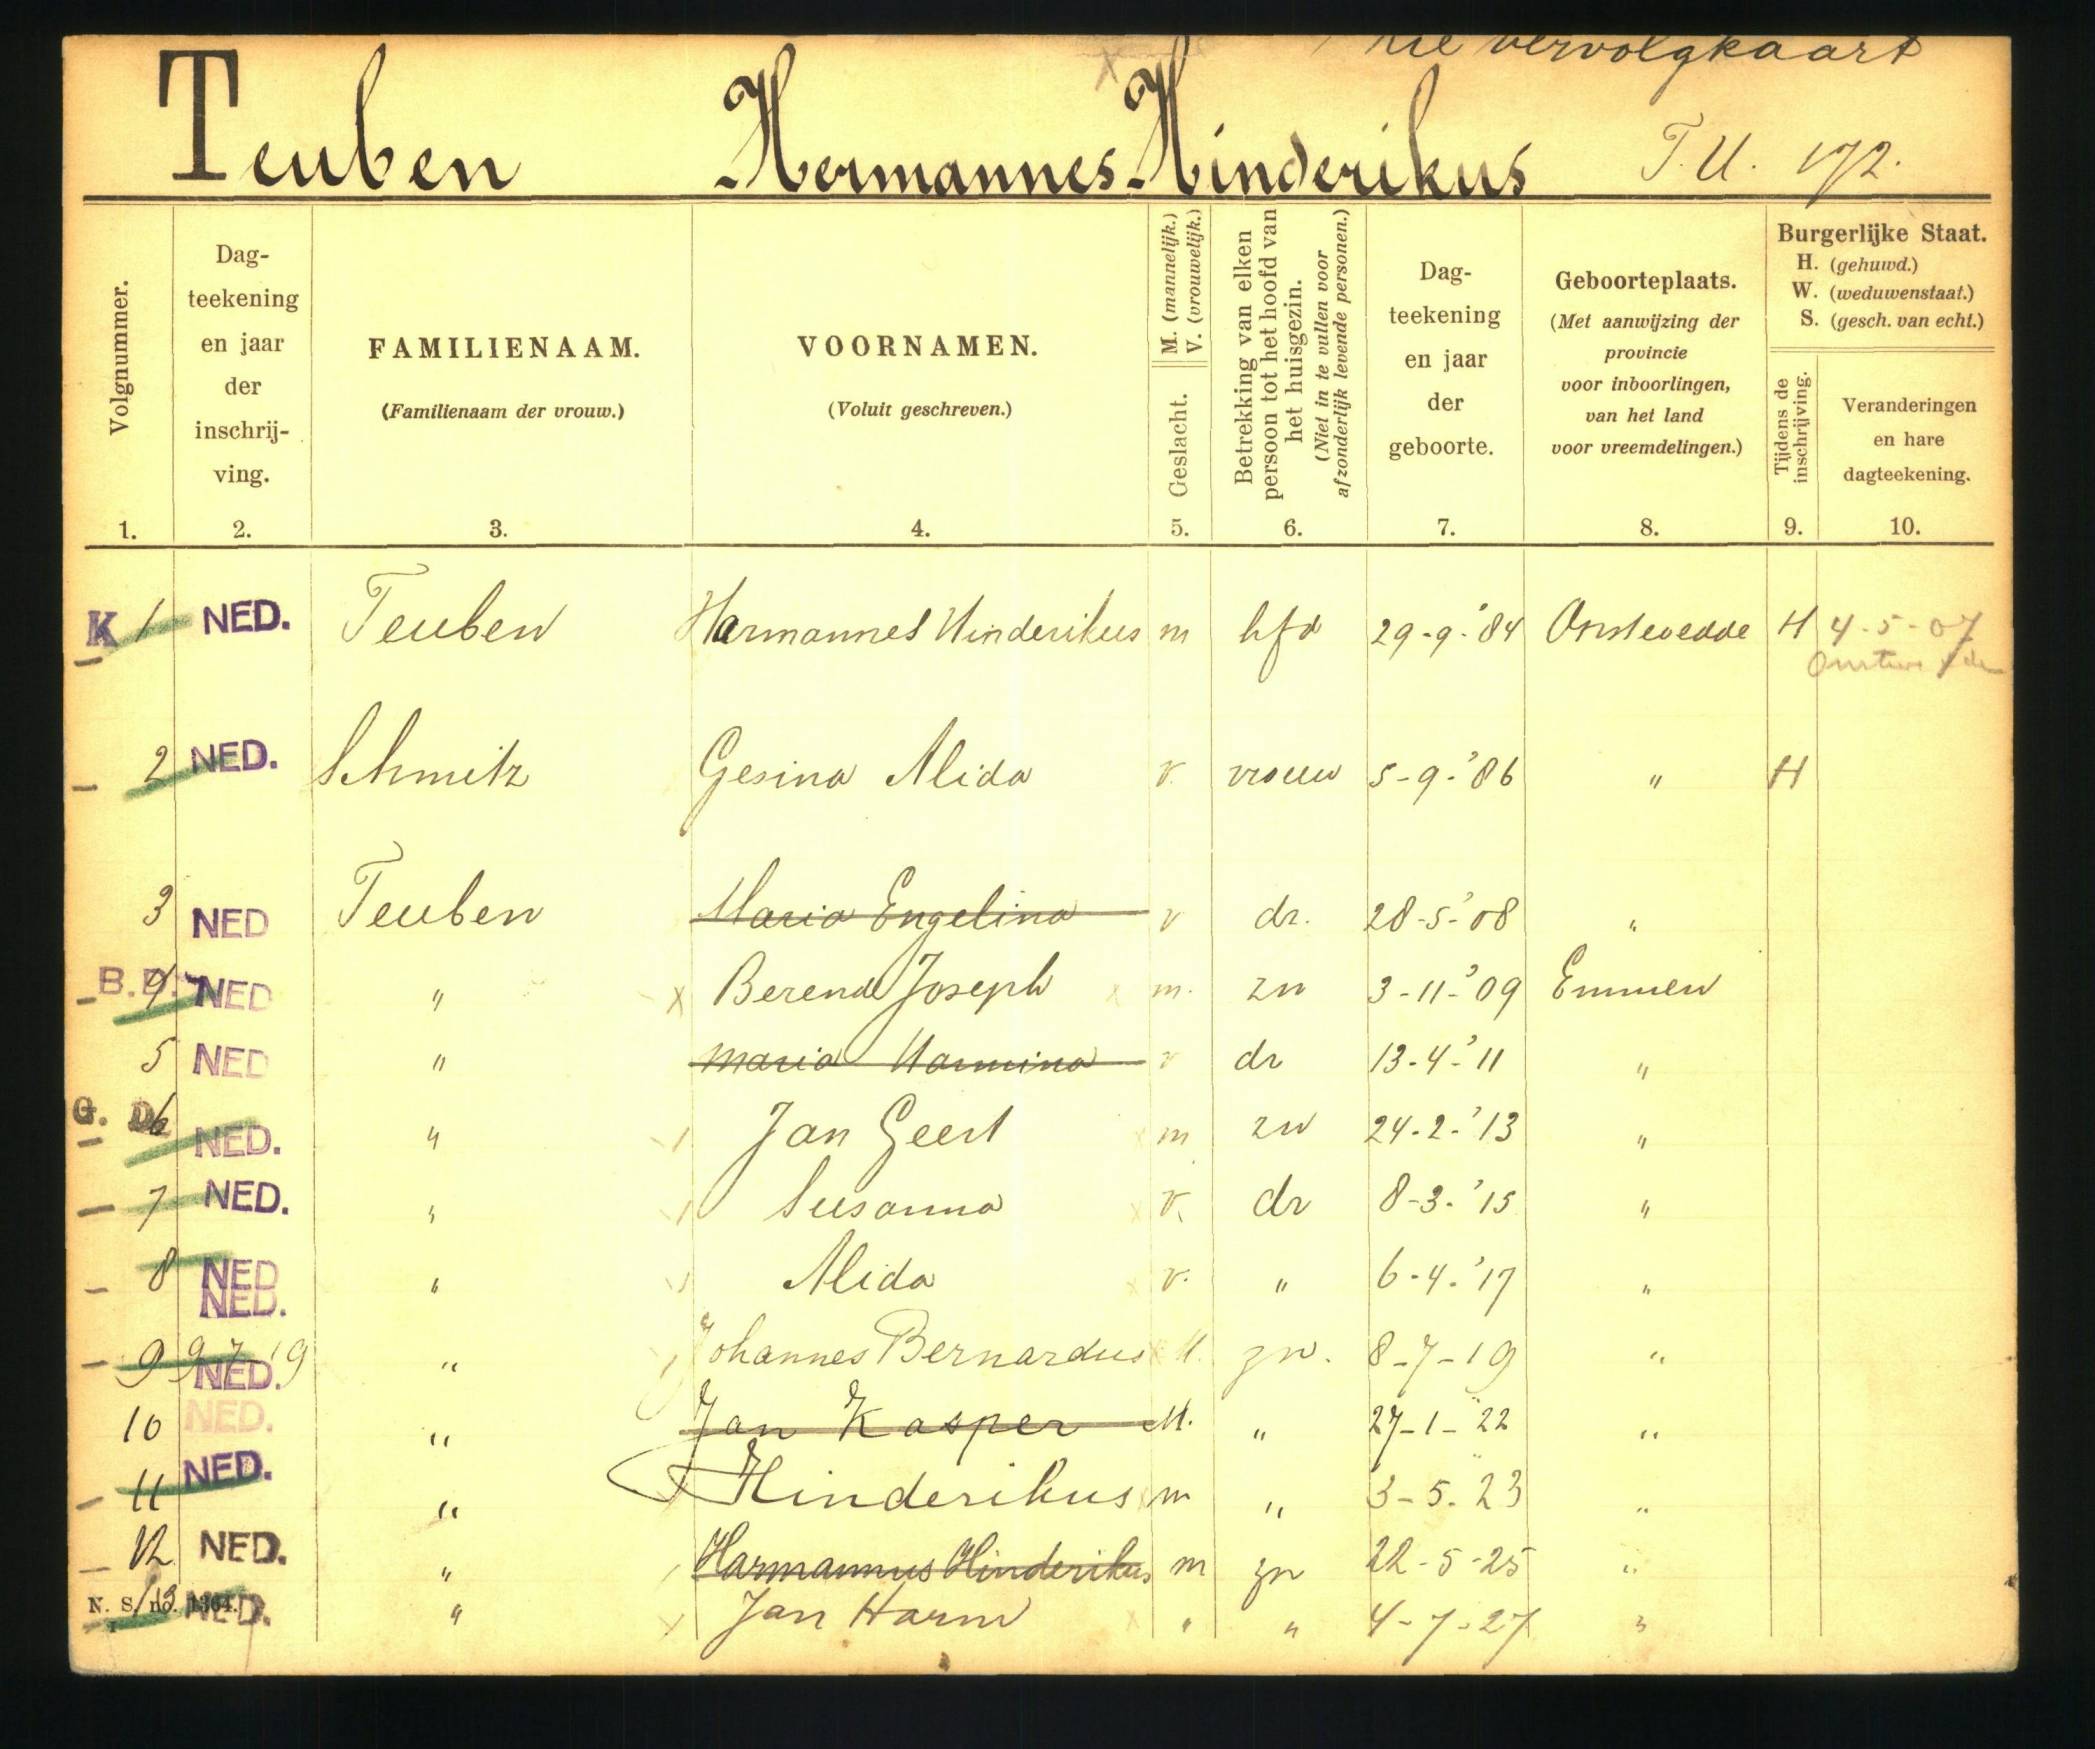 zie vervolgkaart
Teuben Hermannes Hinderikus T.U. 172.
Volgnummer.
Dag-
teekening
en jaar
der
inschrij-
ving.
FAMILIENAAM.
(Familienaam der vrouw.)
VOORNAMEN.
(Voluit geschreven.)
M. (mannelijk.)
V. (vrouwelijk.)
Geslacht.
Betrekking van elken
persoon tot het hoofd van
het huisgezin.
(Niet in te vullen voor
afzonderlijk levende personen.)
Dag-
teekening
en jaar
der
geboorte.
Geboorteplaats.
(Met aanwijzing der
provincie
voor inboorlingen,
van het land
voor vreemdelingen.)
Burgerlijke Staat.
H. (gehuwd.)
W. (weduwenstaat.)
S. (gesch. van echt.)
Tijdens de
inschrijving.
Veranderingen
en hare
dagteekening.
1. 2. 3. 4. 5. 6. 7. 8. 9. 10.
K 1 NED. Teuben Harmannes Hinderikus m hfd 29-9-'84 Onstwedde H 4-5-07
2 NED. Schmitz Gesina Alida v. vrouw 5-9-'86 " H
3 NED Teuben Maria Engelina v dr. 28-5-'08 "
B.D. 4 NED " x Berend Joseph x m. zn 3-11-'09 Emmen
5 NED " Maria Harmina v dr 13-4-'11 "
G. D. 6 NED. " Jan Geert x m zn 24-2-'13 "
7 NED. " Susanna x v. dr 8-3-'15 "
8 NED NED. " Alida x v. " 6-4-'17 "
9 9 7 '19 NED. " Johannes Bernardus M. zn. 8-7-19 "
10 NED. " Jan Kasper M. " 27-1-22 "
11 NED. " Hinderikus m " 3-5-23 "
12 NED. " Harmannus Hinderikus m zn 22-5-25 "
13 NED. " Jan Harm x " " 4-7-27 "
N. S. no. 1364.